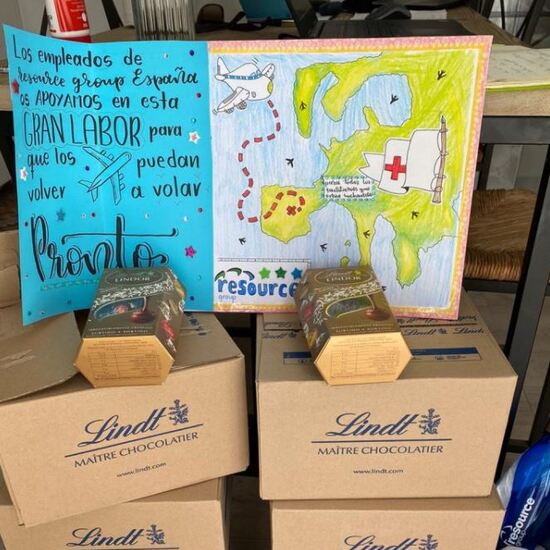 Los empleados de
resource group España
os APOYAMOS en esta
GRAN LABOR para
que los puedan
volver a volar
Pronto
resource
group
Lindt
LINDOR
Lindt
LINDOR
Lindt
MAÎTRE CHOCOLATIER
www.lindt.com
Lindt
MAÎTRE CHOCOLATIER
www.lindt.com
Lindt
Lindt
resource